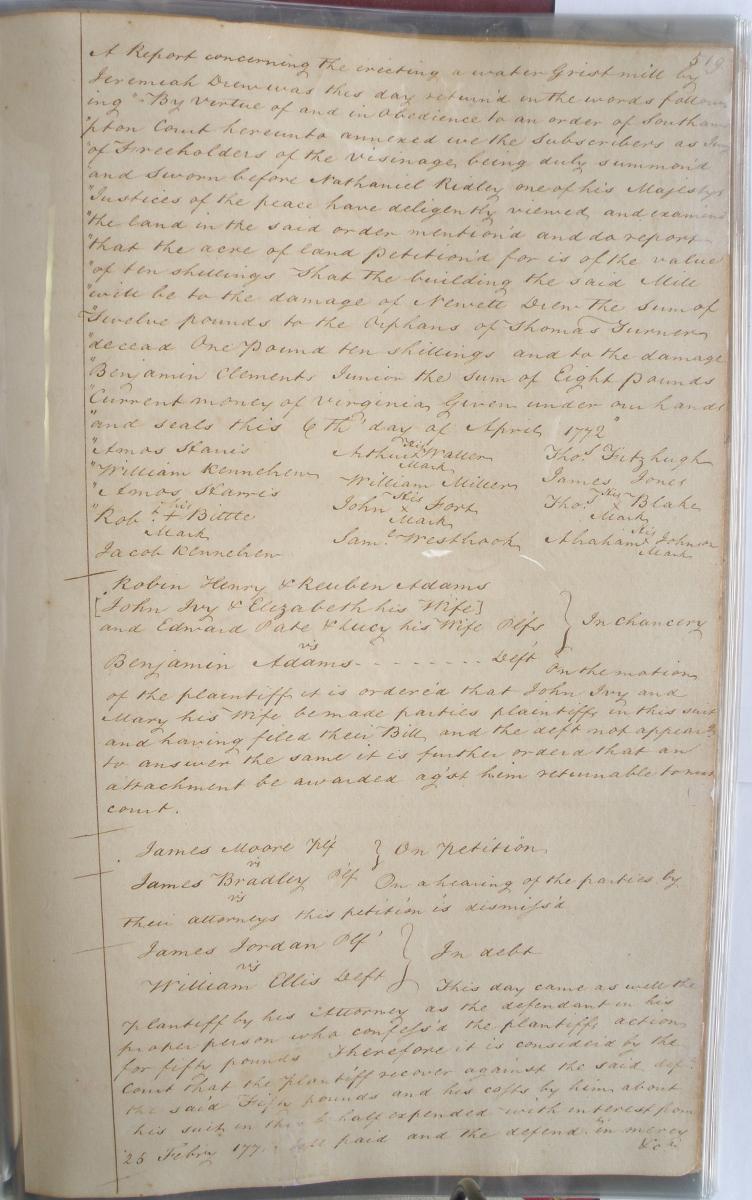 519
A Report concerning the erecting a water Grist mill by
Jeremiah Drew was this day return'd in the words follow
ing" "By Virtue of and in Obedience to an order of Southam
"pton Court hereunto annexed we the Subscribers as Jury
"of Freeholders of the visinage, being duly summon'd
"and Sworn before Nathaniel Ridley one of his Majestys
"Justices of the peace have deligently viewed and examined
"the land in the said order mention'd and do report
"that the acre of land petition'd for is of the value
"of ten shillings that the building the said Mill
"will be to the damage of Newett Drew the sum of
"Twelve pounds to the Orphans of Thomas Turner
"decead One Pound ten shillings and to the damage
"Benjamin Clements Junior the sum of Eight pounds
"Current money of Virginia Given under our hands
"and seals this 6th day of April 1772"
"Amos Stanis Arthur his Mark Waller Thos. Fitzhugh
"William Kennehew William Miller James Jones
"Amos Harris John his x Mark Fort Thos. his x Mark Blake
"Robt. his + Mark Bittle Saml. Westbrook Abraham his Mark Johnson
Jacob Kennehew
Robin Henry & Reuben Adams
[John Ivy & Elizabeth his Wife]
and Edward Pate & Lucy his Wife Plfs } In chancery
vs
Benjamin Adams - - - - - - - - Deft On the motion
of the plaintiff it is order'd that John Ivy and
Mary his Wife be made parties plaintiffs in this suit
and having filed their Bill and the deft not appearg.
to answer the same it is further order'd that an
attachment be awarded agst him returnable to next
court.
James Moore Plf } On Petition
vs
James Bradley Plf On a hearing of the parties by
vs
their attorneys this petition is dismiss'd
James Jordan Plf } In debt
vs
William Ellis Deft This day came as well the
plantiff by his Attorney as the defendant in his
proper person who confess'd the plantiffs action
for fifty pounds Therefore it is consider'd by the
Court that the plantiff recover against the said deft
the said Fifty pounds and his costs by him about
his suit in this behalf expended with interest from
25 Febry 177 paid and the defendt. in mercy
&c